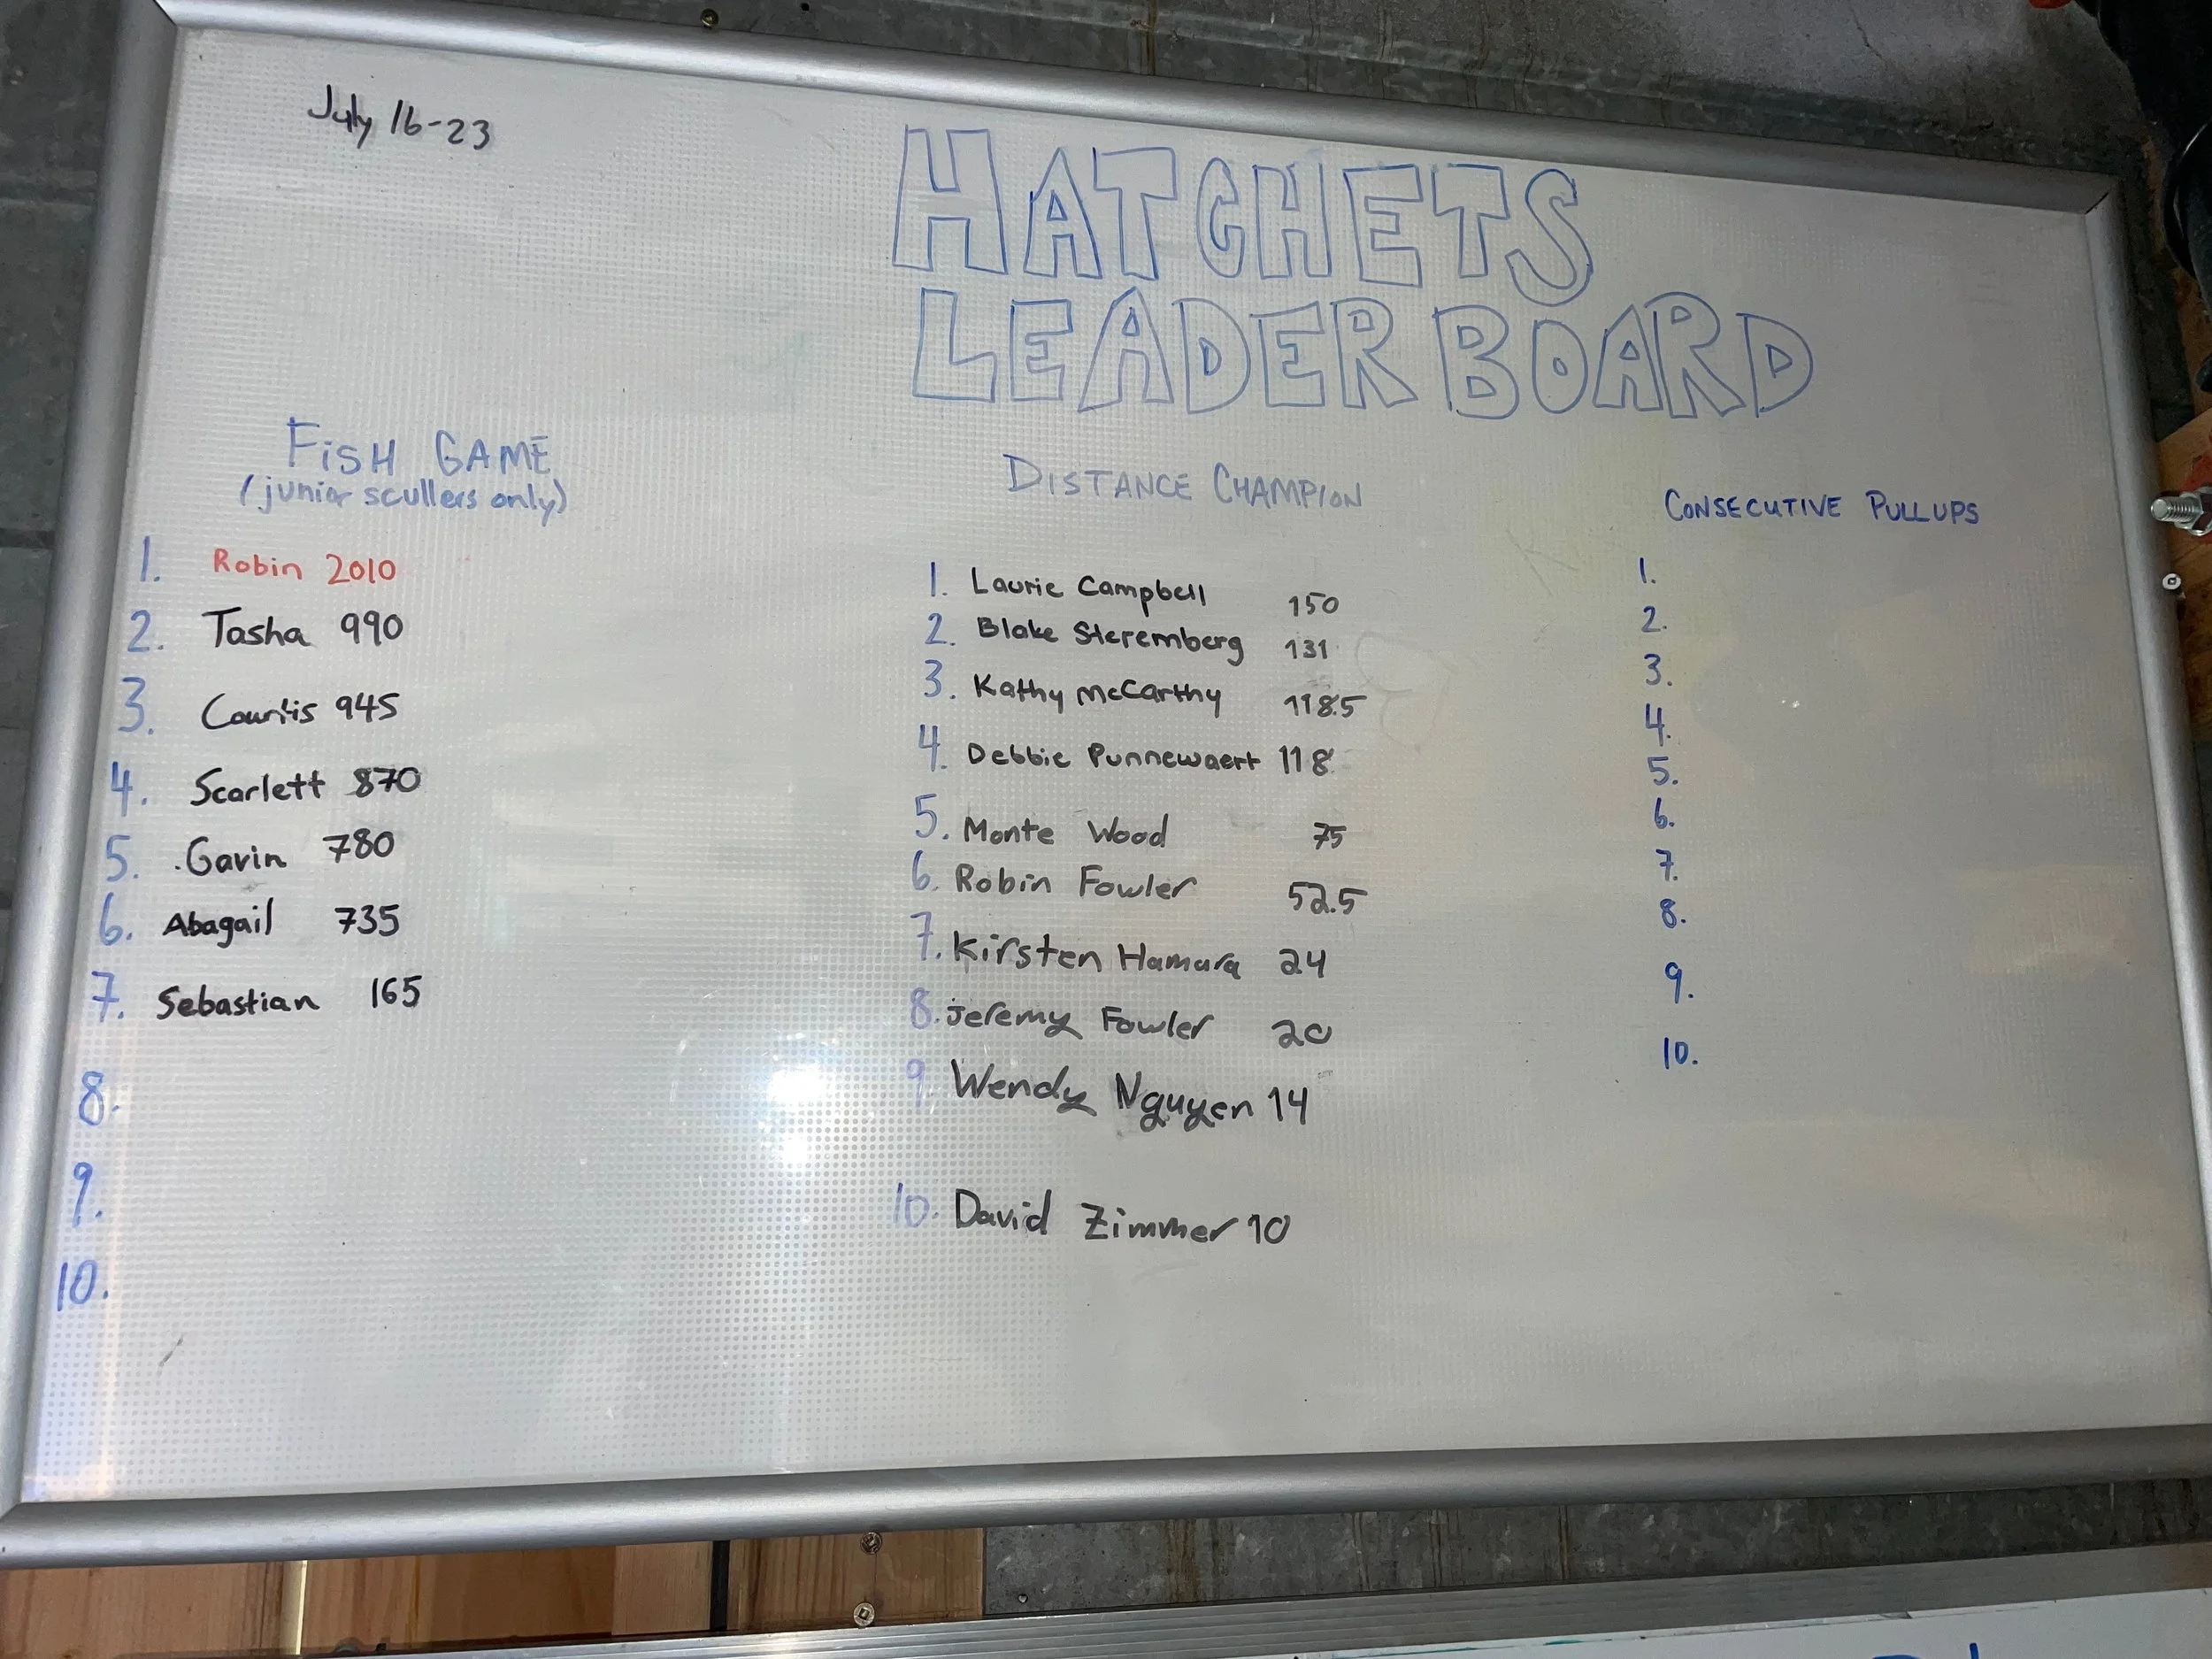 July 16-23
HATCHETS
LEADER BOARD
FISH GAME
(junior scullers only)
1. Robin 2010
2. Tasha 990
3. Courtis 945
4. Scarlett 870
5. Gavin 780
6. Abagail 735
7. Sebastian 165
8.
9.
10.
DISTANCE CHAMPION
1. Laurie Campbell 150
2. Blake Steremberg 131
3. Kathy McCarthy 118.5
4. Debbie Punnewaert 118
5. Monte Wood 75
6. Robin Fowler 52.5
7. Kirsten Hamara 24
8. Jeremy Fowler 20
9. Wendy Nguyen 14
10. David Zimmer 10
CONSECUTIVE PULLUPS
1.
2.
3.
4.
5.
6.
7.
8.
9.
10.